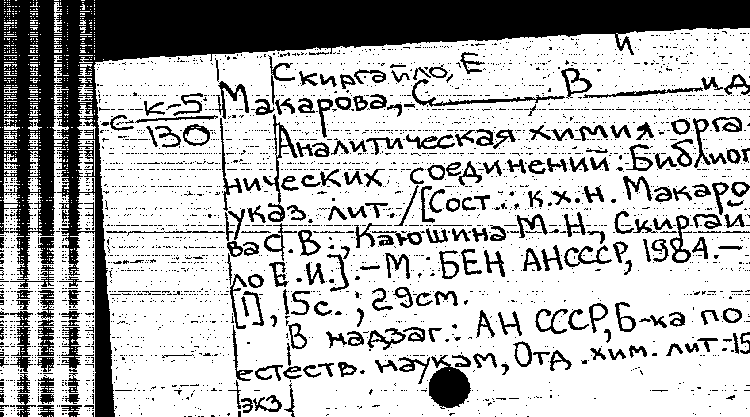 Скиргайло, Е И
с К-5 Макарова, С В и д
130
Аналитическая химия орга-
нических соединений: Библиог
указ. лит. / [Сост.: к.х.н. Макаро
ва С.В., Каюшина М.Н., Скиргай
ло Е.И.]. – М.: БЕН АНСССР, 1984. –
[1], 15с. ; 29см.
В надзаг.: АН СССР, Б-ка по
естеств. наукам, Отд. хим. лит-15
экз.